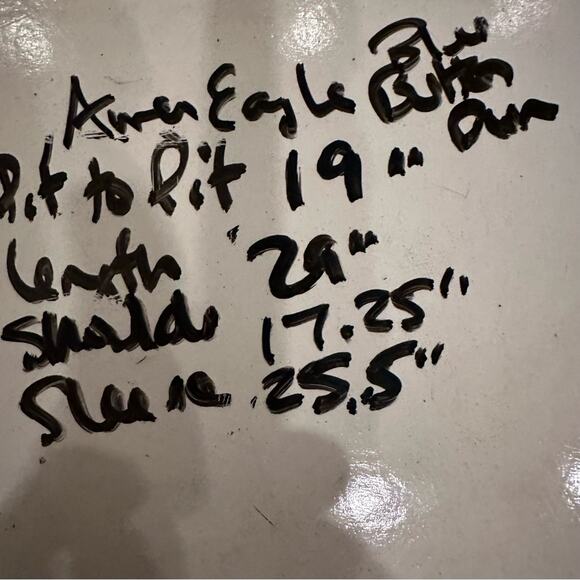 Amer Eagle Blue Button Down
Pit to Pit 19"
Length 29"
Shoulder 17.25"
Sleeve 25.5"